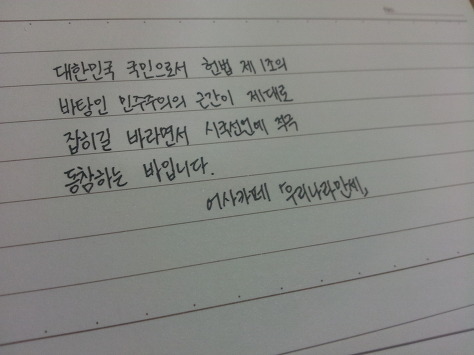 대한민국 국민으로서 헌법 제1조의
바탕인 민주주의의 근간이 제대로
잡히길 바라면서 시국선언에 적극
동참하는 바입니다.
어사카페 「우리나라만세」